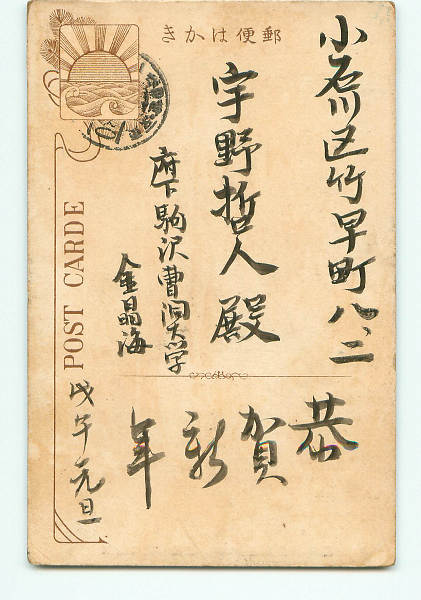 きかは便郵
小石川区竹早町八、二
宇野哲人殿
府下駒沢曹洞大学
金晶海
恭
賀
新
年
戊午元旦
POST CARDE